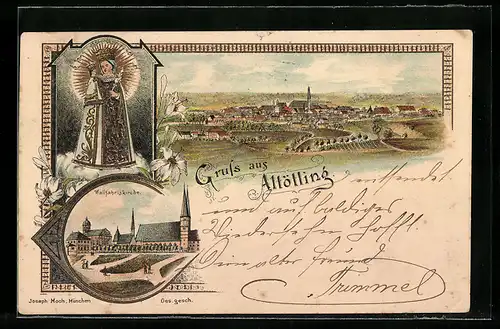 Gruss aus
Altötting
Wallfahrtskirche.
entsendet
und auf baldiges
Wiedersehen hofft
Dein alter Freund
Trimmel
Joseph Koch, München
Ges. gesch.